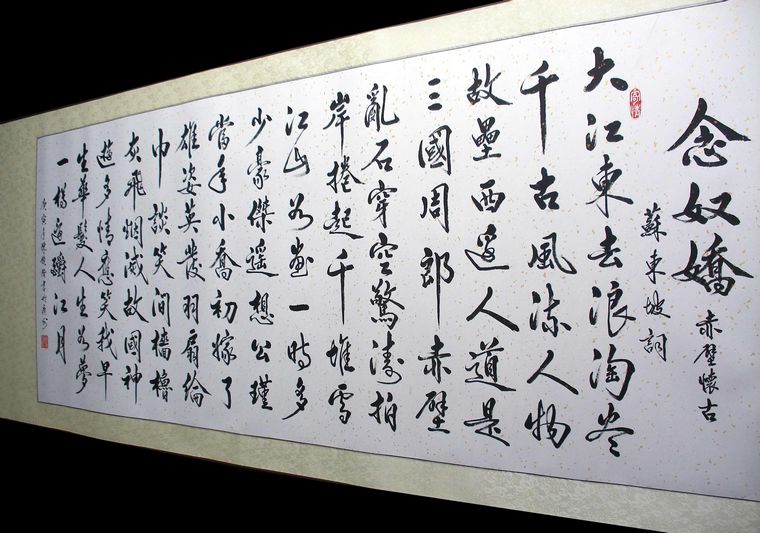 念奴嬌 赤壁懷古
蘇東坡詞
大江東去浪淘尽
千古風流人物
故壘西邊人道是
三國周郎赤壁
亂石穿空驚濤拍
岸捲起千堆雪
江山如畫一時多
少豪傑遥想公瑾
當年小喬初嫁了
雄姿英發羽扇綸
巾談笑間檣櫓
灰飛烟滅故國神
遊多情應笑我早
生華髮人生如夢
一樽還酹江月
庚寅